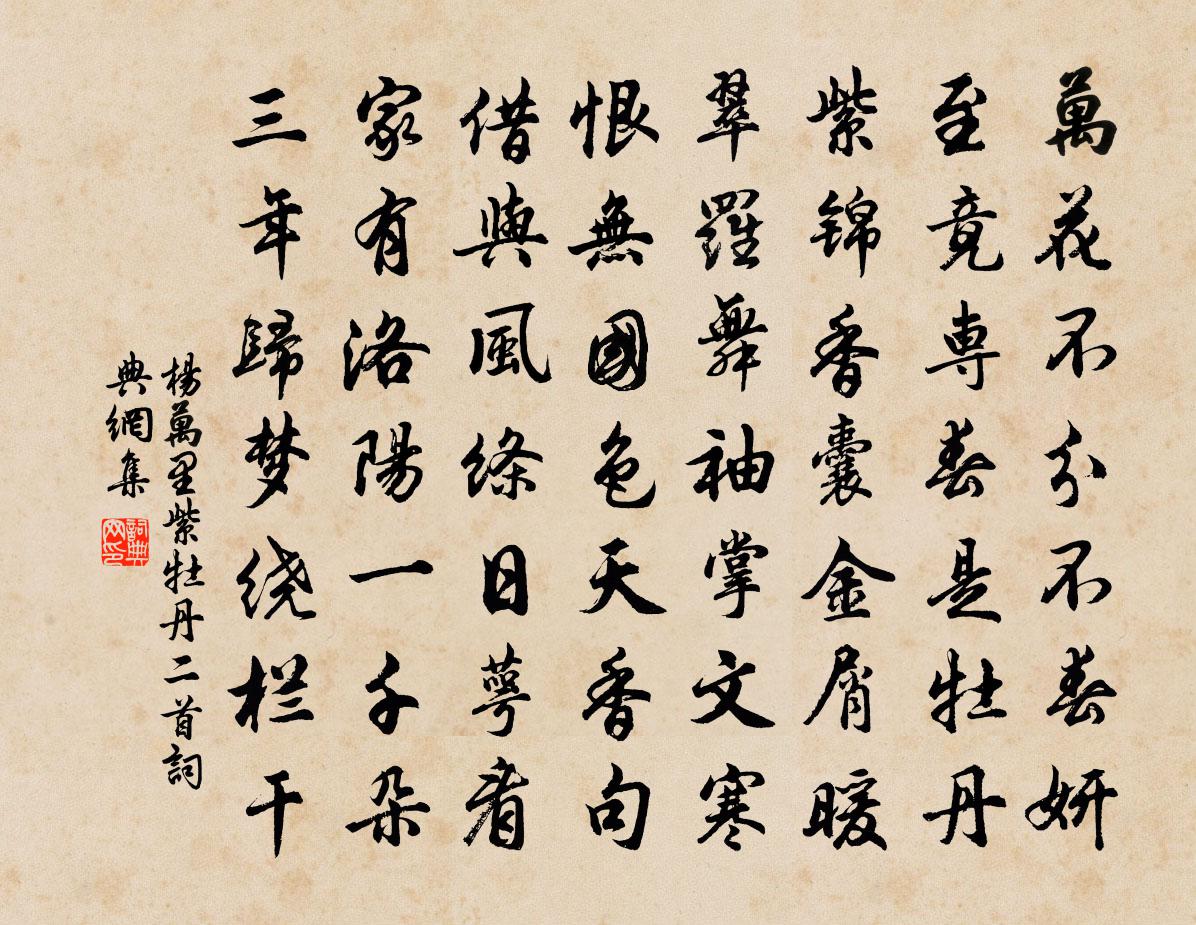 萬花不分不春妍
至竟專春是牡丹
紫锦香囊金屑暖
翠羅舞袖掌文寒
恨無國色天香句
借與風條日萼看
家有洛陽一千朵
三年歸梦绕栏干
楊萬里紫牡丹二首詞
典網集
詞典
网印